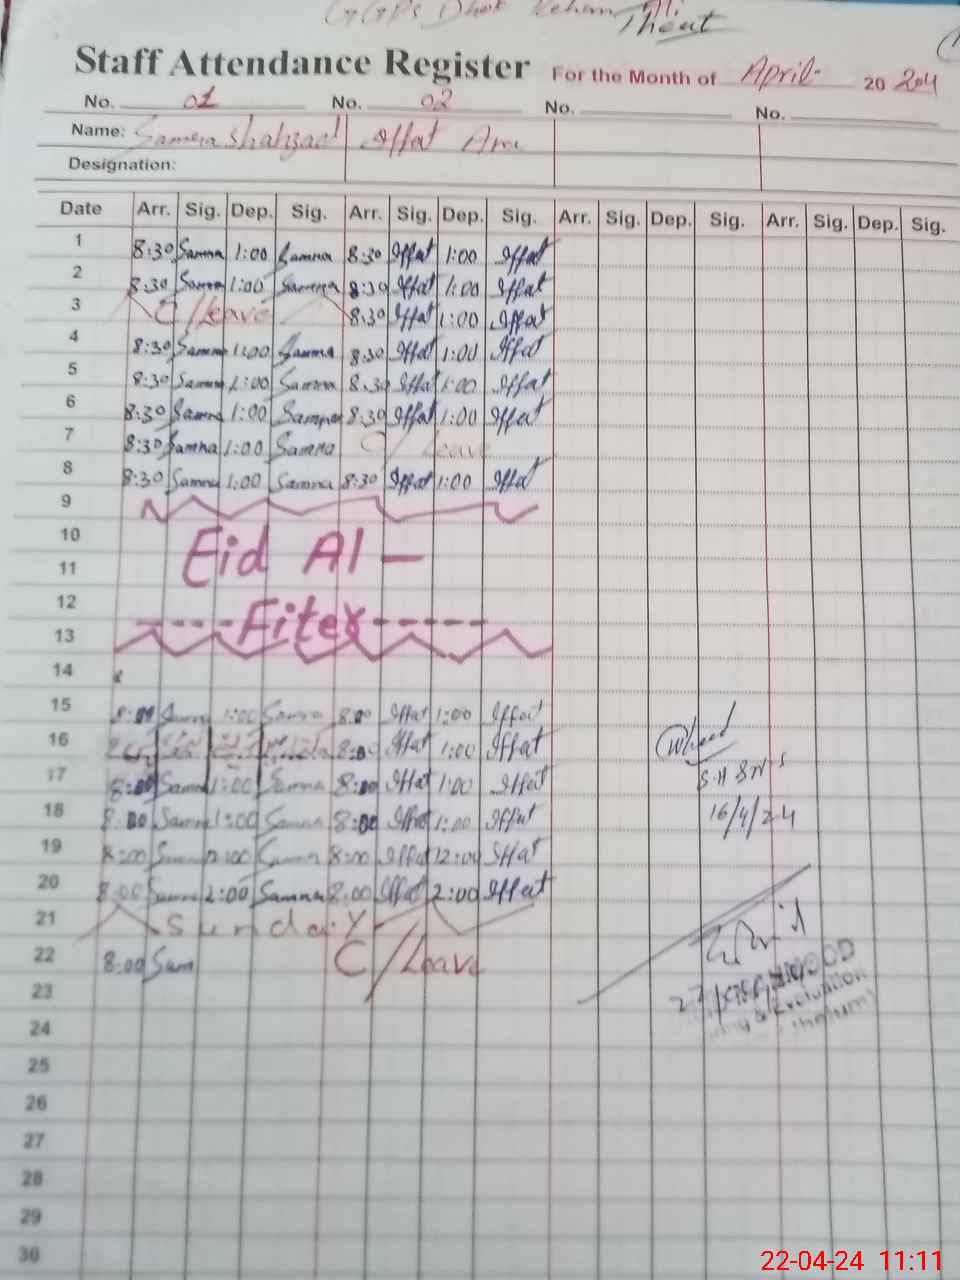 GGPS Dhok Rehan
Staff Attendance Register For the Month of April 20 2024
No. 01 No. 02 No. No.
Name: Samna Shahzad Iffat
Designation:
Date Arr. Sig. Dep. Sig. Arr. Sig. Dep. Sig. Arr. Sig. Dep. Sig. Arr. Sig. Dep. Sig.
1 8:30 Samna 1:00 Samna 8:30 Iffat 1:00 Iffat
2 8:30 Samna 1:00 Samna 8:30 Iffat 1:00 Iffat
3 C/Leave 8:30 Iffat 1:00 Iffat
4 8:30 Samna 1:00 Samna 8:30 Iffat 1:00 Iffat
5 8:30 Samna 1:00 Samna 8:30 Iffat 1:00 Iffat
6 8:30 Samna 1:00 Samna 8:30 Iffat 1:00 Iffat
7 8:30 Samna 1:00 Samna C/Leave
8 8:30 Samna 1:00 Samna 8:30 Iffat 1:00 Iffat
9
10 Eid Al -
11
12 ----Fiter------
13
14
15 8:00 Samna 1:00 Samna 8:00 Iffat 1:00 Iffat
16 8:00 Iffat 1:00 Iffat
17 8:00 Samna 1:00 Samna 8:00 Iffat 1:00 Iffat
18 8:00 Samna 1:00 Samna 8:00 Iffat 1:00 Iffat
16/4/24
19 8:00 Samna 12:00 Samna 8:00 Iffat 12:00 Iffat
20 8:00 Samna 2:00 Samna 8:00 Iffat 2:00 Iffat
21 Sunday
22 8:00 Sam C/Leave
23
& Evaluation
24
25
26
27
28
29
30
22-04-24 11:11